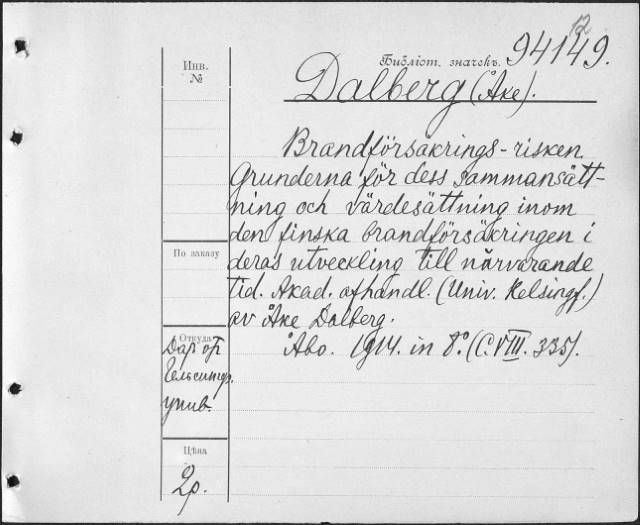 12
Инв.
№
Библіот. значекъ.
94149.
Dalberg (Åke).
Brandförsäkrings-risken.
Grunderna för dess sammansätt-
ning och värdesättning inom
den finska brandförsäkringen i
deras utveckling till närvarande
tid. Akad. afhandl. (Univ. Helsingf.)
av Åke Dalberg.
Åbo. 1914. in 8º. (C. VIII. 335).
По заказу
Откуда
Дар от
Гельсингф.
унив.
Цѣна
2р.